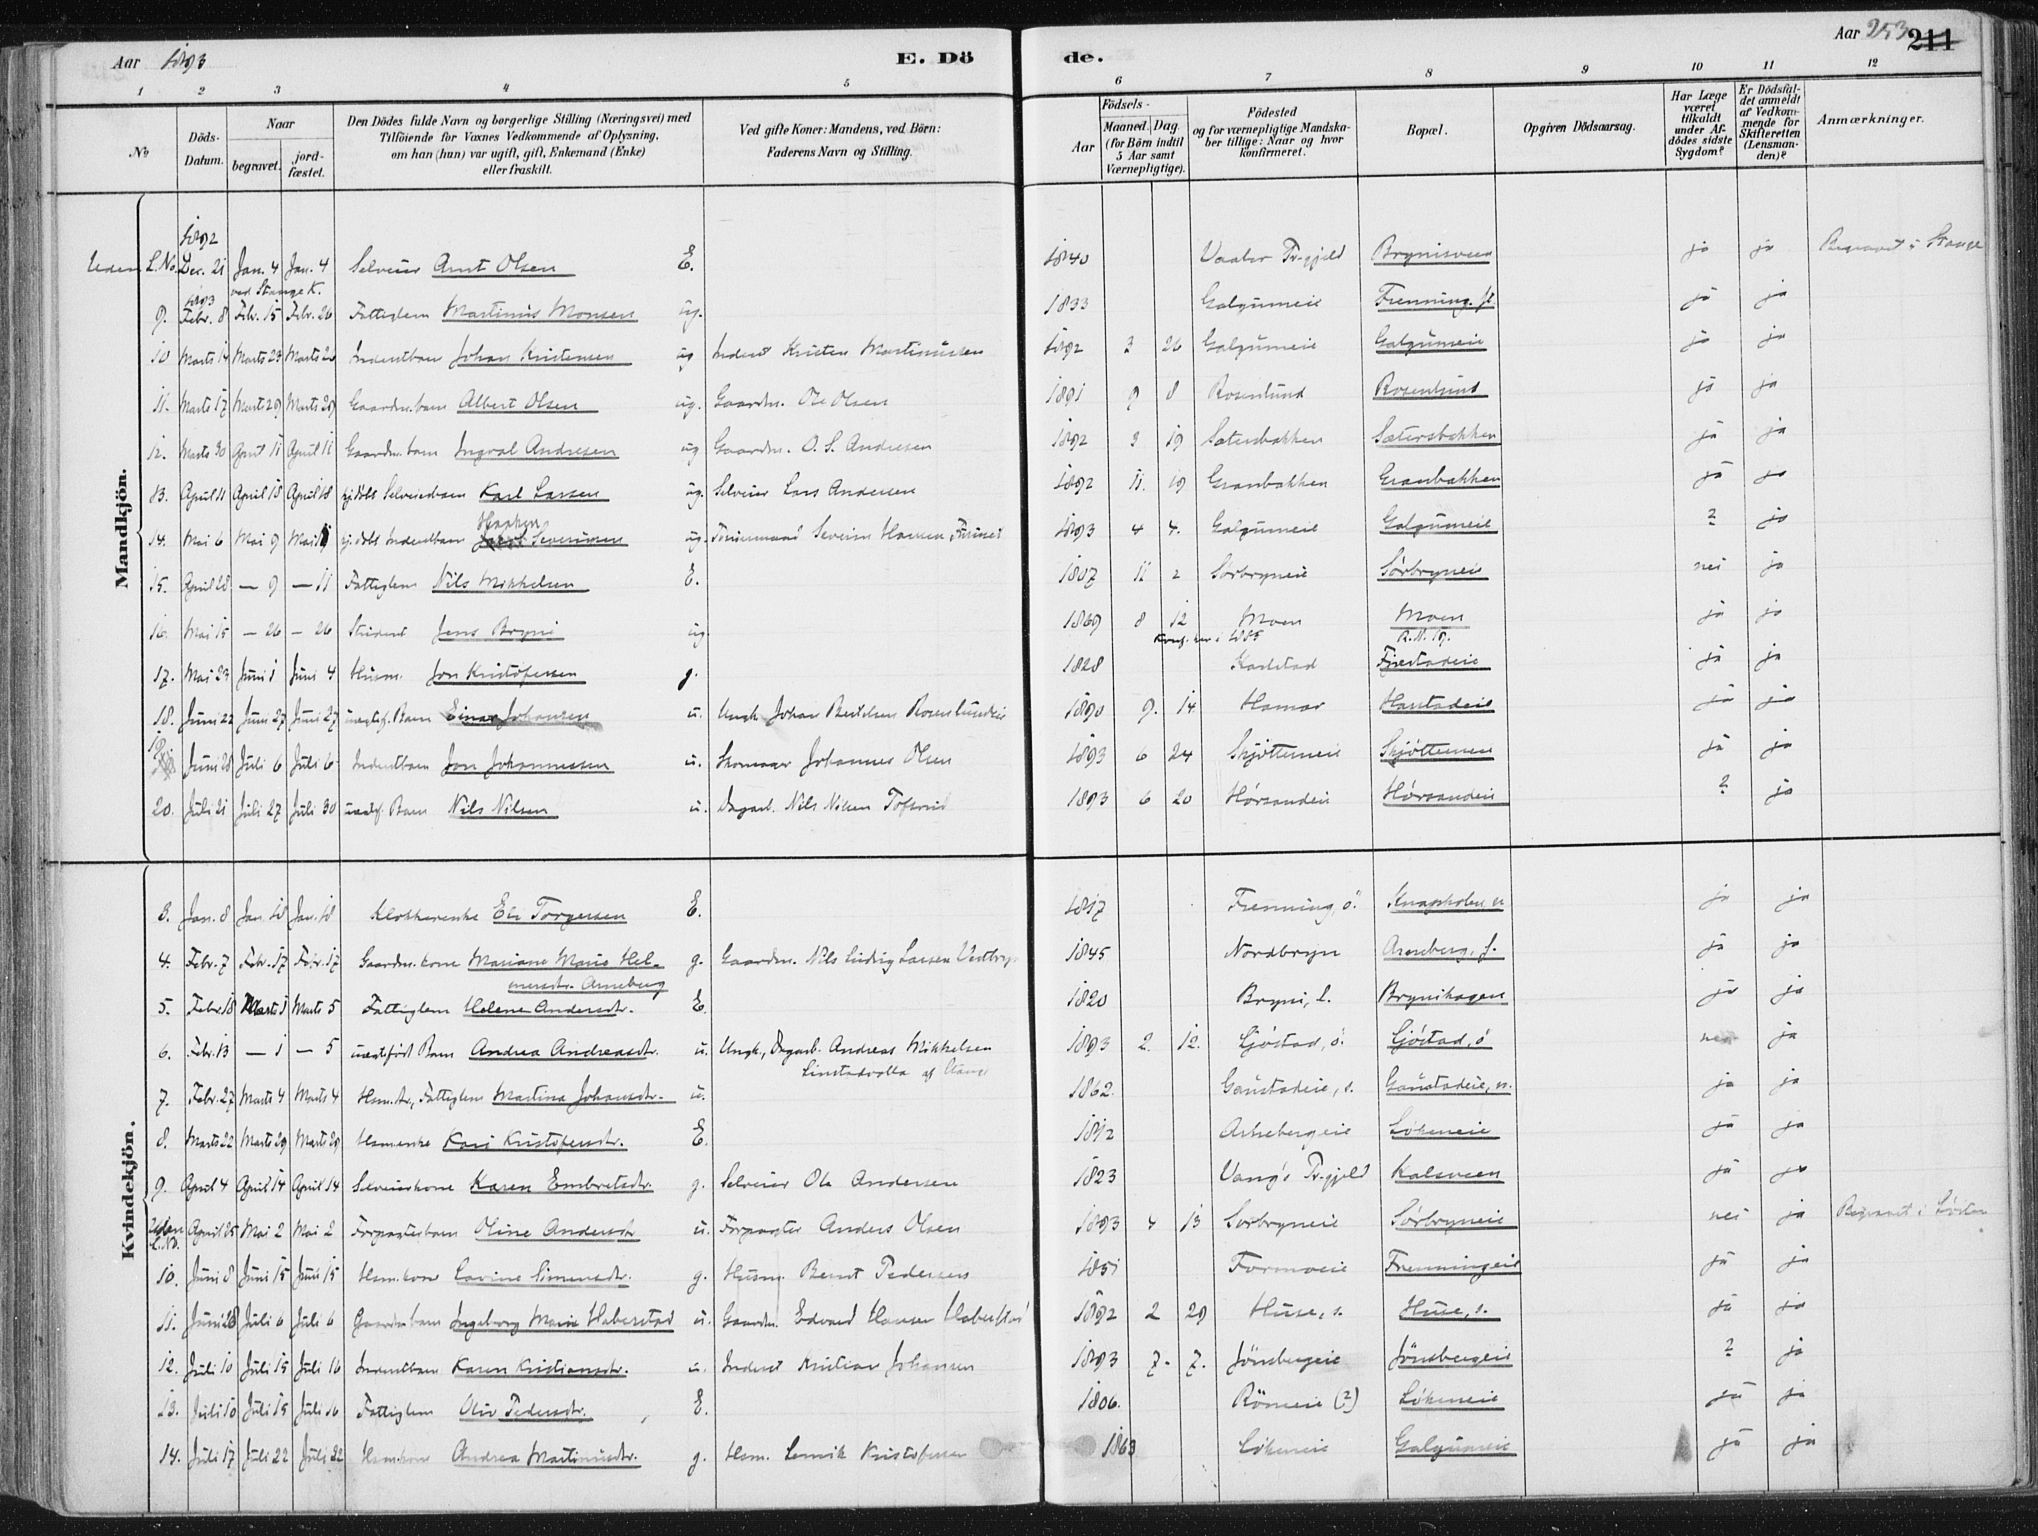 Aar 1893 E. Döde. Aar 253 211
1 2 3 4 5 6 7 8 9 10 11 12
No
Döds-Datum.
Naar
begravet.
jordfæstet.
Den Dödes fulde Navn og borgerlige Stilling (Næringsvei) med
Tilföiende for Voxnes Vedkommende af Oplysning,
om han (hun) var ugift, gift, Enkemand (Enke)
eller fraskilt.
Ved gifte Koner: Mandens, ved Börn:
Faderens Navn og Stilling.
Födsels-
Aar
Maaned. Dag.
(for Börn indtil
5 Aar samt
Værnepligtige).
Födested
og for værnepligtige Mandska-
ber tillige: Naar og hvor
konfirmeret.
Bopæl.
Opgiven Dödsaarsag.
Har Læge
været
tilkaldt
under Af-
dödes sidste
Sygdom?
Er Dödsfal-
det anmeldt
af Vedkom-
mende for
Skifteretten
(Lensman-
den)?
Anmærkninger.
Mandkjön.
1892
Uden L. No. Dec. 21 Jan. 4 Jan. 4 Selveier Arnt Olsen E. 1840 Vaaler Pr.gjeld Brynisveen ja ja Begravet i Stange
ved Stange K.
1893
9. Febr. 8 Febr. 15 Febr. 26 Fattiglem Martinus Monsen ug. 1833 Galgumeie Frenning ja ja
10 Marts 14 Marts 23 Marts 26 Inderstbarn Johan Kristensen ug Inderst Kristen Martinussen 1892 3 26 Galgumeie Galgumeie ja ja
11. Marts 17 Marts 29 Marts 29 Gaardm.barn Albert Olsen ug. Gaardm. Ole Olsen 1891 9 8 Rosenlund Rosenlund ja ja
12. Marts 30 April 11 April 11 Gaardm.barn Ingval Andresen ug Gaardm. O. S. Andresen 1892 9 19 Sætersbakken Sætersbakken ja ja
13. April 11 April 18 April 18 hj.döbt Selveierbarn Karl Larsen ug. Selveier Lars Andersen 1892 11. 19 Granbakken Granbakken ja ja
Haaken
14. Mai 6 Mai 9 Mai hj.döbt Inderstbarn Severinsen ug. Severin Hansen 1893 4 4. Galgumeie Galgumeie ? ja
15. April 28 — 9 — 11 Fattiglem Nils Mikkelsen E. 1807 11 2 Sörbryneie Sörbryneie nei ja
16. Mai 15 — 26 — 26 Student Jens Bryni ug. 1869 8 12 Moen Moen ja ja
17. Mai 23 Juni 1 Juni 4 Husm. Jon Kristofersen g. 1828 Karlstad Fjestadeie ja ja
18. Juni 22 Juni 27 Juni 27 uægtef. Barn Einar Johansen u. Ungk. Johan Bertelsen Rosenlundeie 1890 9. 14 Hamar Harstadeie ja ja
19 Juni 28 Juli 6 Juli 6 Inderstbarn Jon Johannessen u. Skomager Johannes Olsen 1893 6 24 Skjötteneie Skjötteneie ja ja
20. Juli 21 Juli 27 Juli 30 uægtef. Barn Nils Nilsen u. Dagarb. Nils Nilsen Tofsrud 1893 6 20 Hörsandeie Hörsandeie ? ja
Kvindekjön.
3. Jan. 8 Jan. 18 Jan. 18 Klokkerenke Eli Torgersen E. 1817 Frenning, ö. Knapholen, n ja ja
4. Febr. 7 Febr. 17 Febr. 17 Gaardm.kone Mariane Marie Hel- g. Gaardm. Nils Ludvig Larsen Vestbryn 1845 Nordbryn Arneberg, s. ja ja
mersdtr. Arneberg
5. Febr. 18 Marts 1 Marts 5 Fattiglem Helene Andersdtr. E. 1820 Bryni, l. Brynihagen ja ja
6. Febr. 13 — 1 — 5 uægtefödt Barn Andrea Andreasdtr. u. Ungk., Dagarb. Andreas Mikkelsen 1893 2. 12. Gjöstad, ö. Gjöstad, ö nei ja
Linstadvolla af Stange
7. Febr. 27 Marts 4 Marts 4 Hsm.dtr., Fattiglem Martina Johansdtr. u. 1862. Gaustadeie, s. Gaustadeie, n. ja ja
8. Marts 22 Marts 29 Marts 29 Hsm.enke Kari Kristofersdtr. E. 1812 Arnebergeie Lökeneie ja ja
9. April 4 April 14 April 14 Selveierkone Karen Embretsdtr. g. Selveier Ole Andersen 1823 Vang's Pr.gjeld Kalsveen ja ja
Uden L. No. April 25 Mai 2 Mai 2 Forpagterbarn Oline Andersdtr u. Forpagter Anders Olsen 1893 4 13 Sörbryneie Sörbryneie nei ja Begravet i Löiten
10. Juni 8 Juni 15 Juni 15 Hsm.kone Lovine Simensdtr. g. Husm. Bernt Pedersen 1851 Formoeie Frenningeie ja ja
11. Juni 28 Juli 6 Juli 6 Gaardm.barn Ingeborg Marie Haberstad u. Gaardm. Edvard Hansen Haberstad 1892 2 29 Huse, s. Huse, s. ja ja
12. Juli 10 Juli 15 Juli 16 Inderstbarn Karen Kristiansdtr. u. Inderst Kristian Johansen 1893 7. 7. Jönsbergeie Jönsbergeie ? ja
13. Juli 10 Juli 15 Juli 16 Fattiglem Oliv Pedersdtr. E. 1806. Römeie (?) Lökeneie ja ja
14. Juli 17 Juli 22 Juli 22 Hsm.kone Andrea Martinusdtr. g. Hsm. Lenvik Kristofersen 1863 Lökeneie Galgumeie ja ja